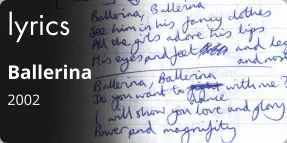 lyrics
Ballerina
2002
Ballerina, Ballerina
See him in his fancy clothes
All the girls adore his lips
His eyes and feet and leg
and nose
Ballerina, Ballerina
Do you want to dance with me?
I will show you love and glory
Power and magnifity